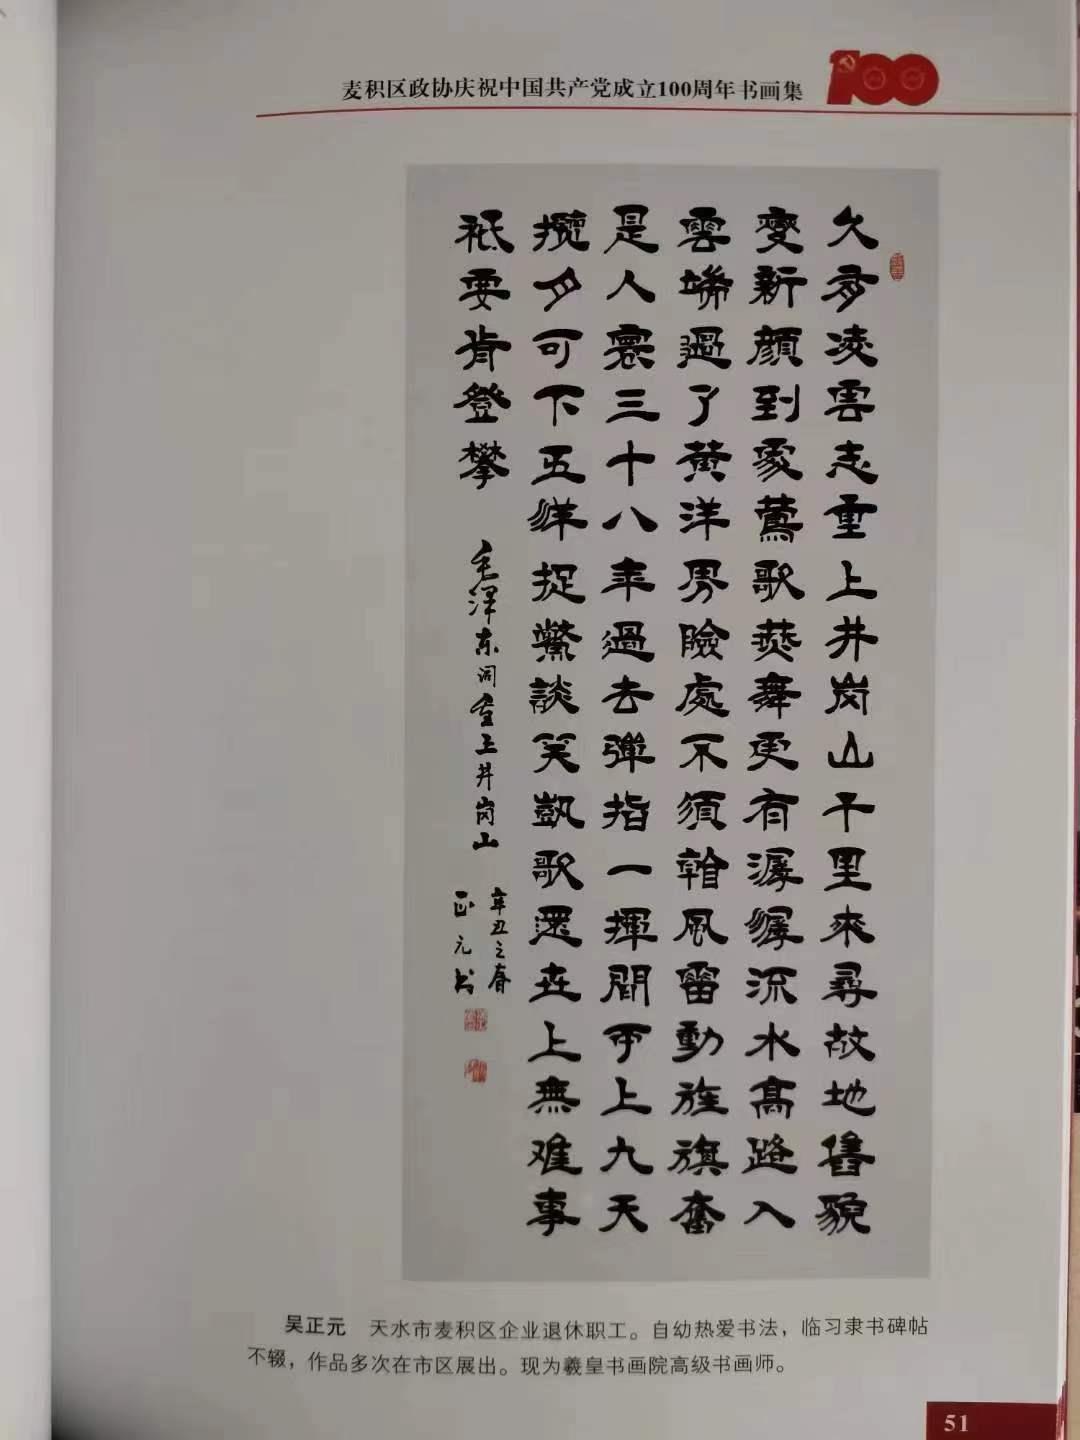 麦积区政协庆祝中国共产党成立100周年书画集
100
久有凌雲志重上井岗山千里來尋故地舊貌
變新顔到處鶯歌燕舞更有潺潺流水高路入
雲端過了黄洋界險處不須看風雷動旌旗奮
是人寰三十八年過去彈指一揮間可上九天
攬月可下五洋捉鱉談笑凱歌還世上無難事
祗要肯登攀
毛泽东词重上井岗山
辛丑之春
正元书
吴正元 天水市麦积区企业退休职工。自幼热爱书法，临习隶书碑帖
不辍，作品多次在市区展出。现为羲皇书画院高级书画师。
51